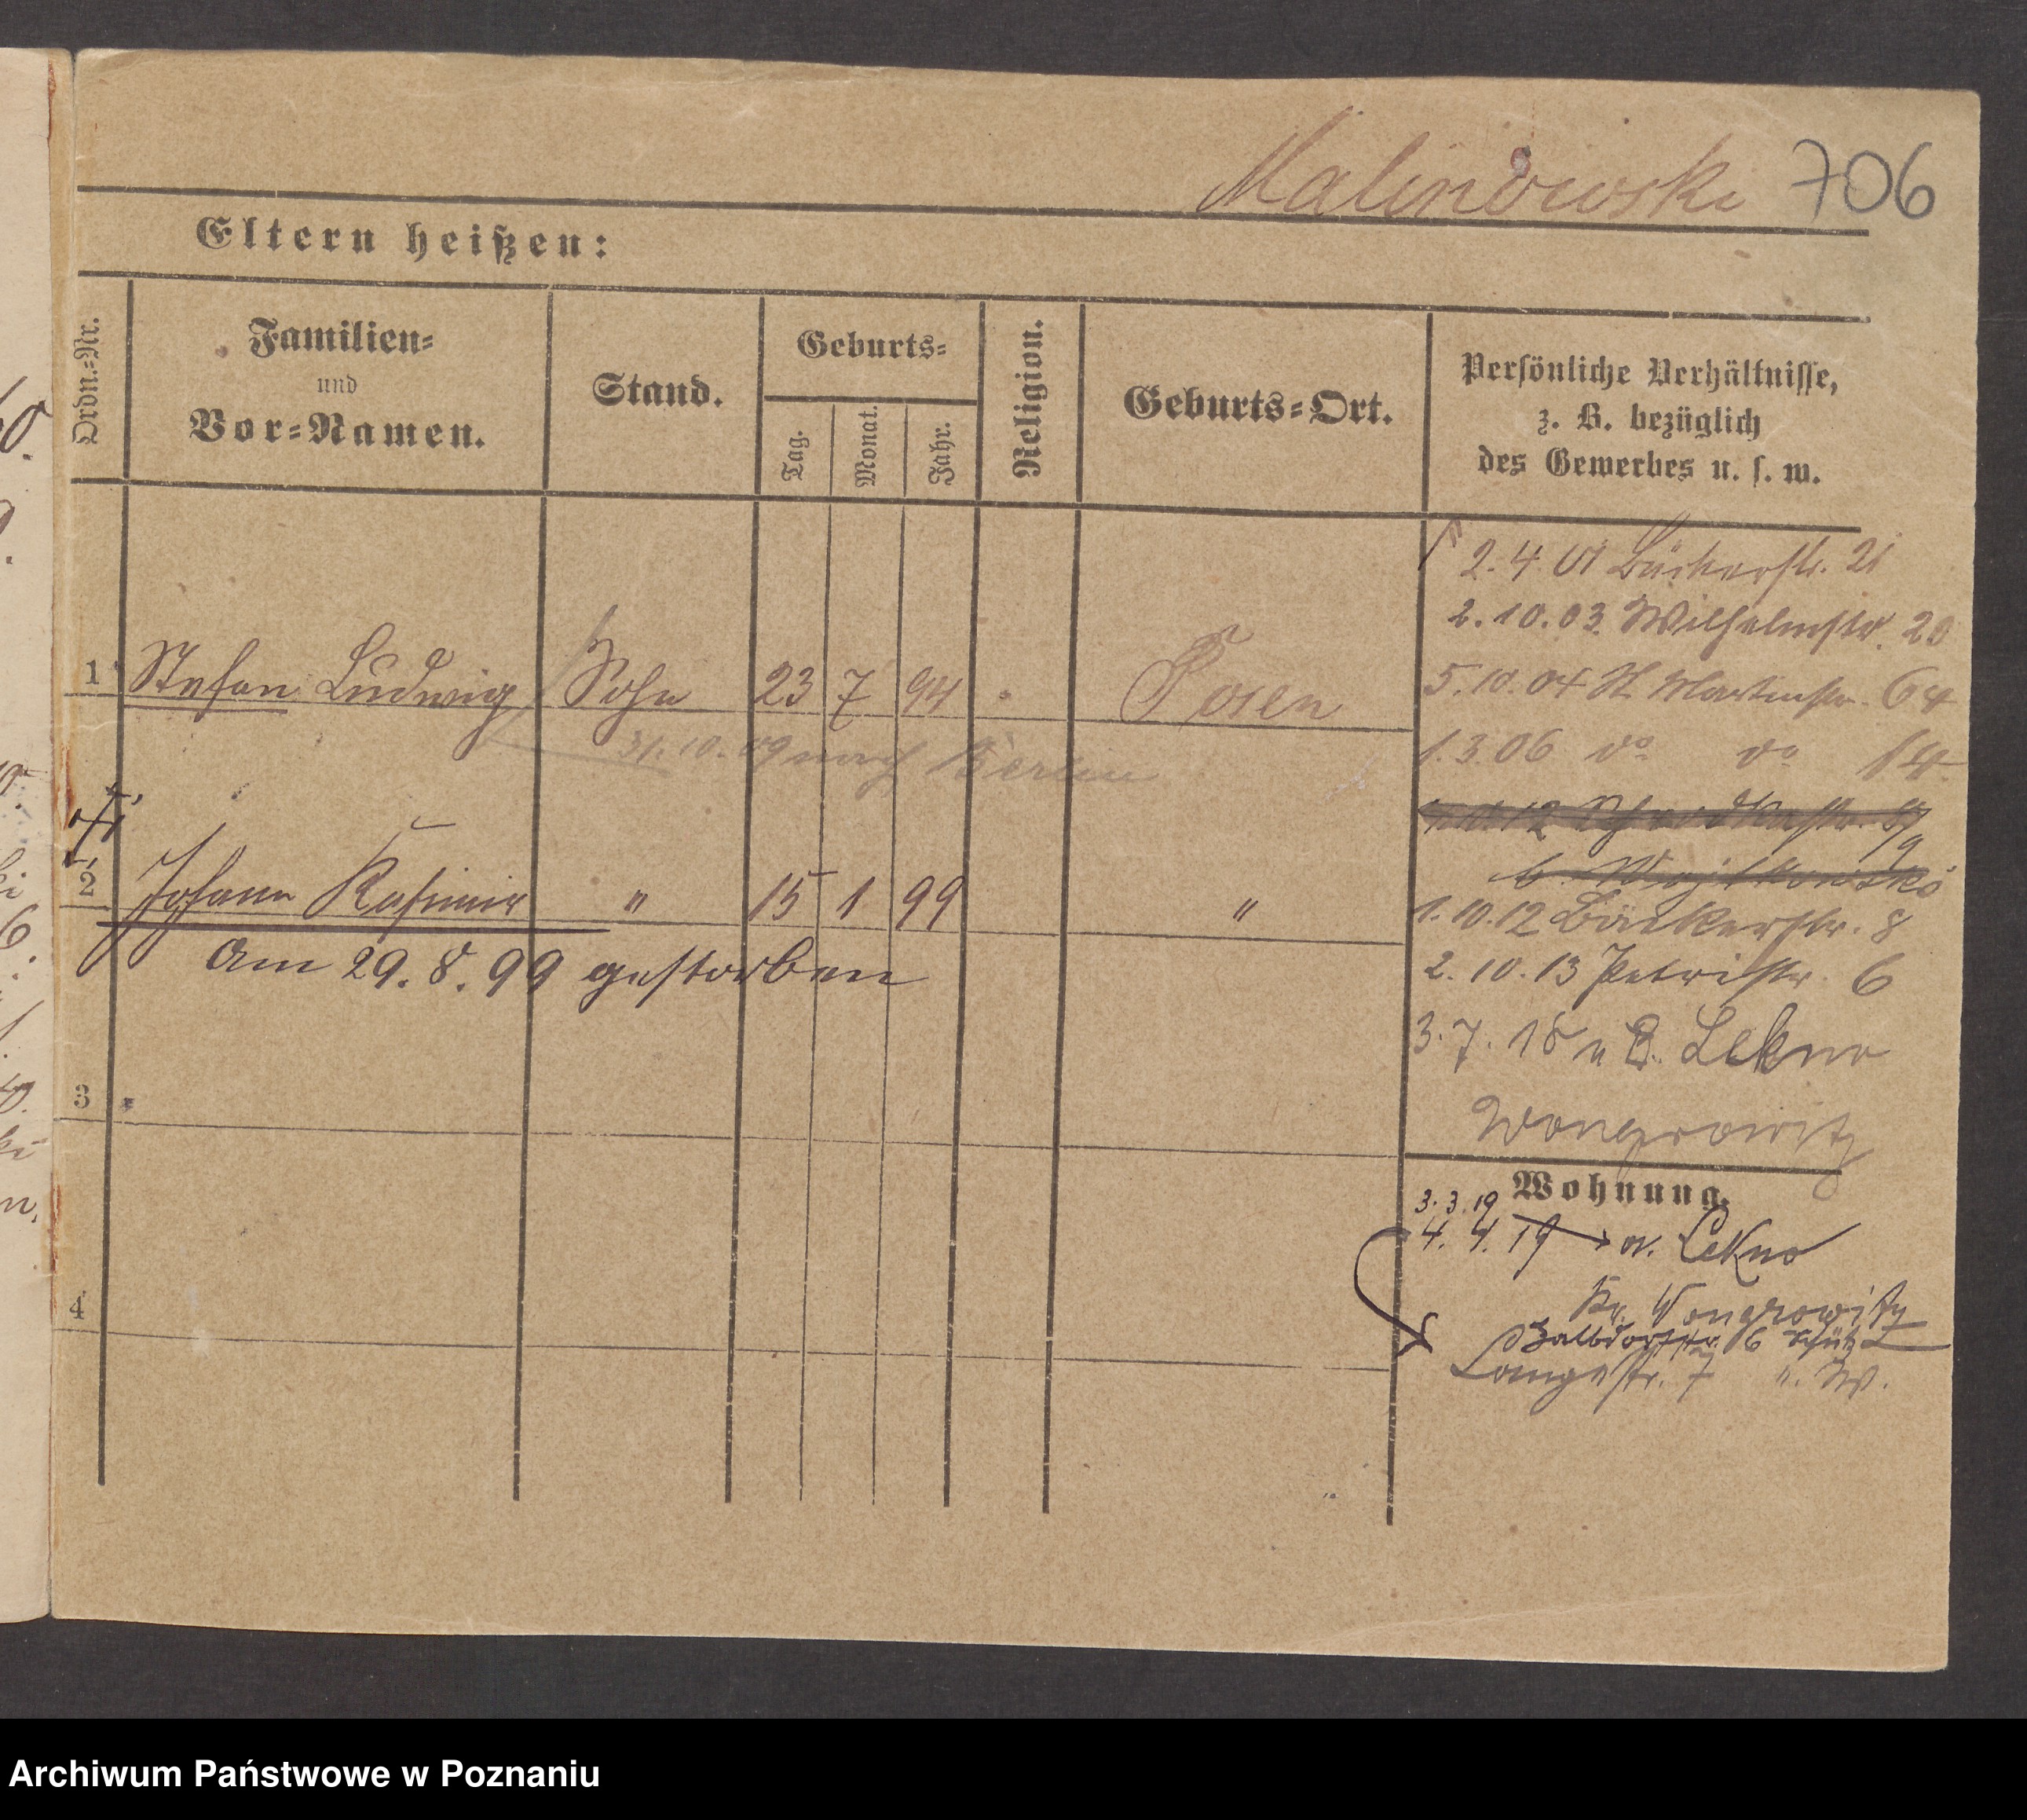 Malinowski 706
Eltern heißen:
Ordn.-Nr.
Familien-
und
Vor-Namen.
Stand.
Geburts-
Tag.
Monat.
Jahr.
Religion.
Geburts-Ort.
Persönliche Verhältnisse,
z. B. bezüglich
des Gewerbes u. s. w.
2. 4. 01 Bäckerstr. 21
2. 10. 03. Wilhelmstr. 20
1 Stefan Ludwig Sohn 23 7 94 Posen
5. 10. 04 St Martinstr. 64
31. 10. 09 nach Berlin
1. 3 06 do do 14
2 Johann Kasimir " 15 1 99 "
am 29. 8. 99 gestorben
1. 10. 12 Bäckerstr. 8
2. 10. 13 Petristr. 6
3. 7. 18 n Lekno
Wongrowitz
3
Wohnung.
3. 3. 19
4. 4. 19 n. Lekno
Kr. Wongrowitz
4
Langestr. 7
Archiwum Państwowe w Poznaniu